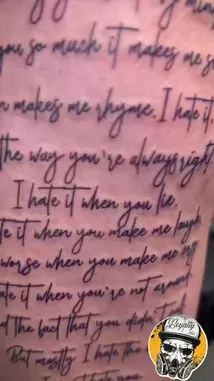 you so much it makes me s
makes me rhyme. I hate it,
the way you're always right
I hate it when you lie.
te it when you make me laugh
worse when you make me cry
ate it when you're not around
d the fact that you didn't
But mostly I hate the
Loyalty